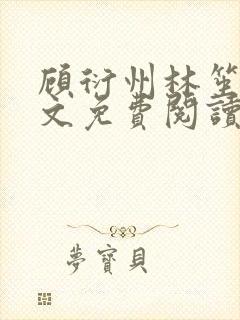 顾衍州林笙
文免費閱讀
夢寶貝